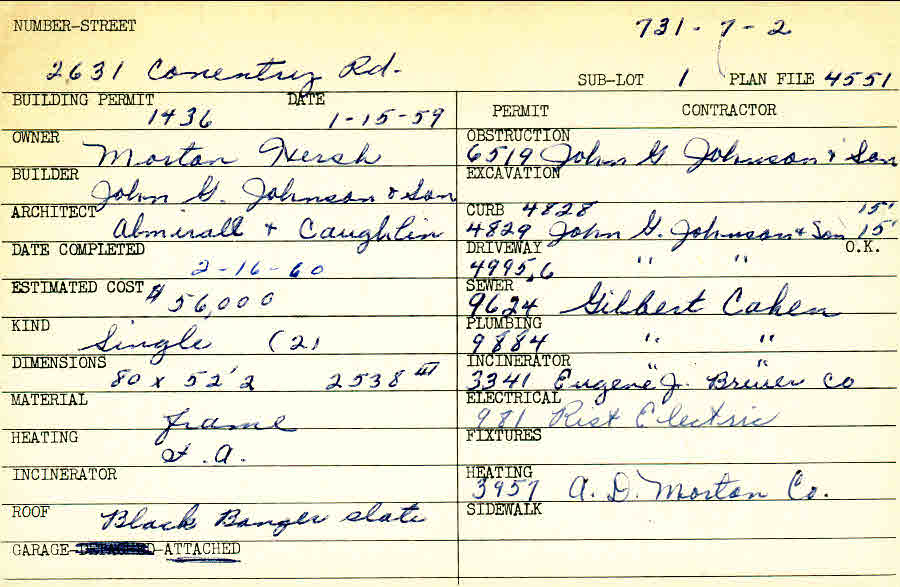 NUMBER-STREET
731-7-2
2631 Conentry Rd.
SUB-LOT 1 PLAN FILE 4551
BUILDING PERMIT DATE
1436 1-15-59
OWNER
Morton Hersh
BUILDER
John G. Johnson & Son
ARCHITECT
Abmirall + Caughlin
DATE COMPLETED
2-16-60
ESTIMATED COST $56,000
KIND
Single (2)
DIMENSIONS
80 x 52'2 2538
MATERIAL
frame
HEATING
f.a.
INCINERATOR
ROOF
Black Banger slate
GARAGE-DETACHED-ATTACHED
PERMIT CONTRACTOR
OBSTRUCTION
6519 John G Johnson & Son
EXCAVATION
CURB 4828 15'
4829 John G. Johnson & Son 15'
DRIVEWAY O.K.
4995,6 " "
SEWER
9624 Gilbert Cohen
PLUMBING
9884 " "
INCINERATOR " "
3341 Eugene J. Brewer Co
ELECTRICAL
981 Rist Electric
FIXTURES
HEATING
3957 A. D. Morton Co.
SIDEWALK